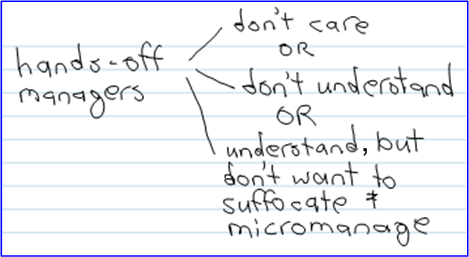 hands-off
managers
don't care
OR
don't understand
OR
understand, but
don't want to
suffocate &
micromanage